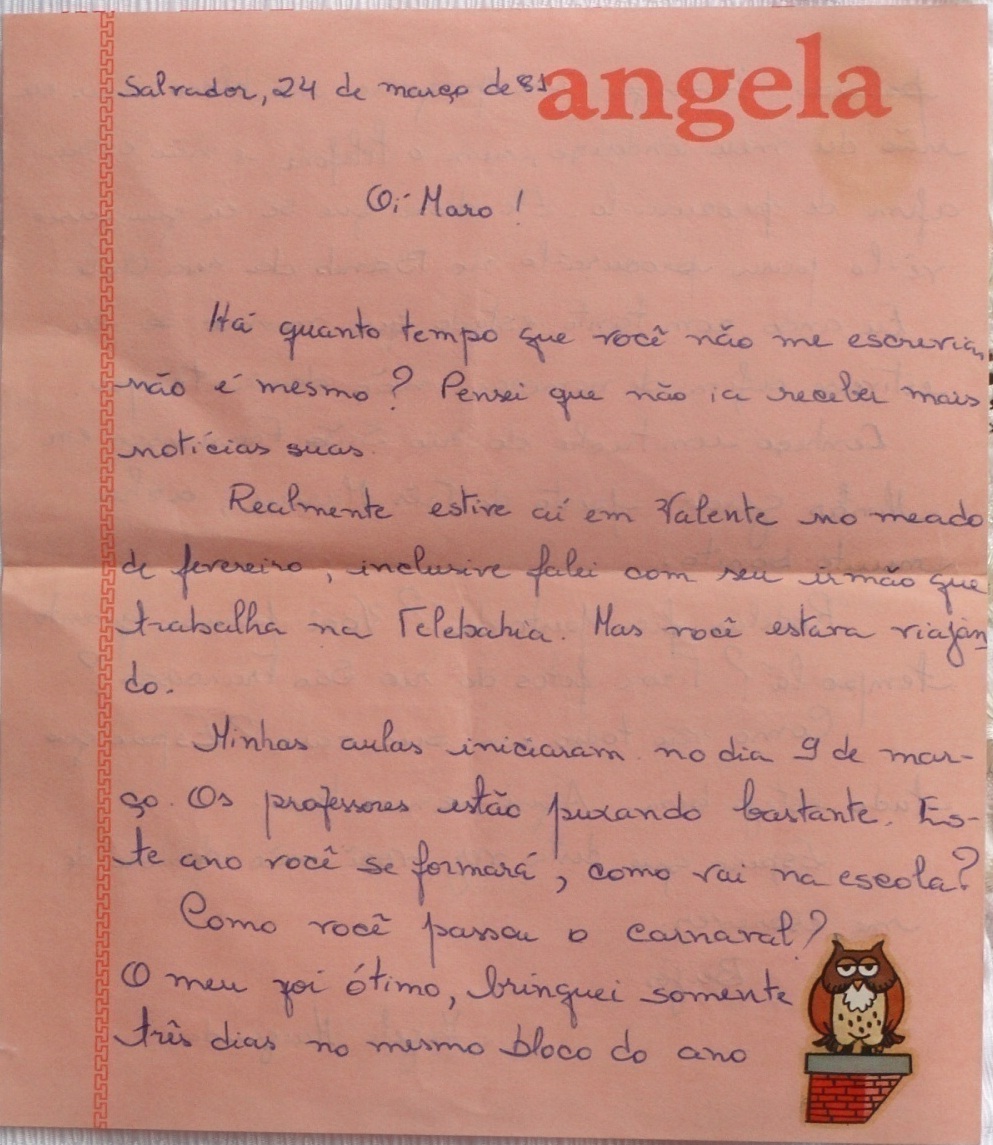 angela
Salvador, 24 de março de 81
Oi Maro!
Há quanto tempo que você não me escrevia,
não é mesmo? Pensei que não ia receber mais
notícias suas.
Realmente estive aí em Valente no meado
de fevereiro, inclusive falei com seu irmão que
trabalha na Telebahia. Mas você estava viajan
do.
Minhas aulas iniciaram no dia 9 de mar-
ço. Os professores estão puxando bastante. Es-
te ano você se formará, como vai na escola?
Como você passou o carnaval?
O meu foi ótimo, brinquei somente
três dias no mesmo bloco do ano